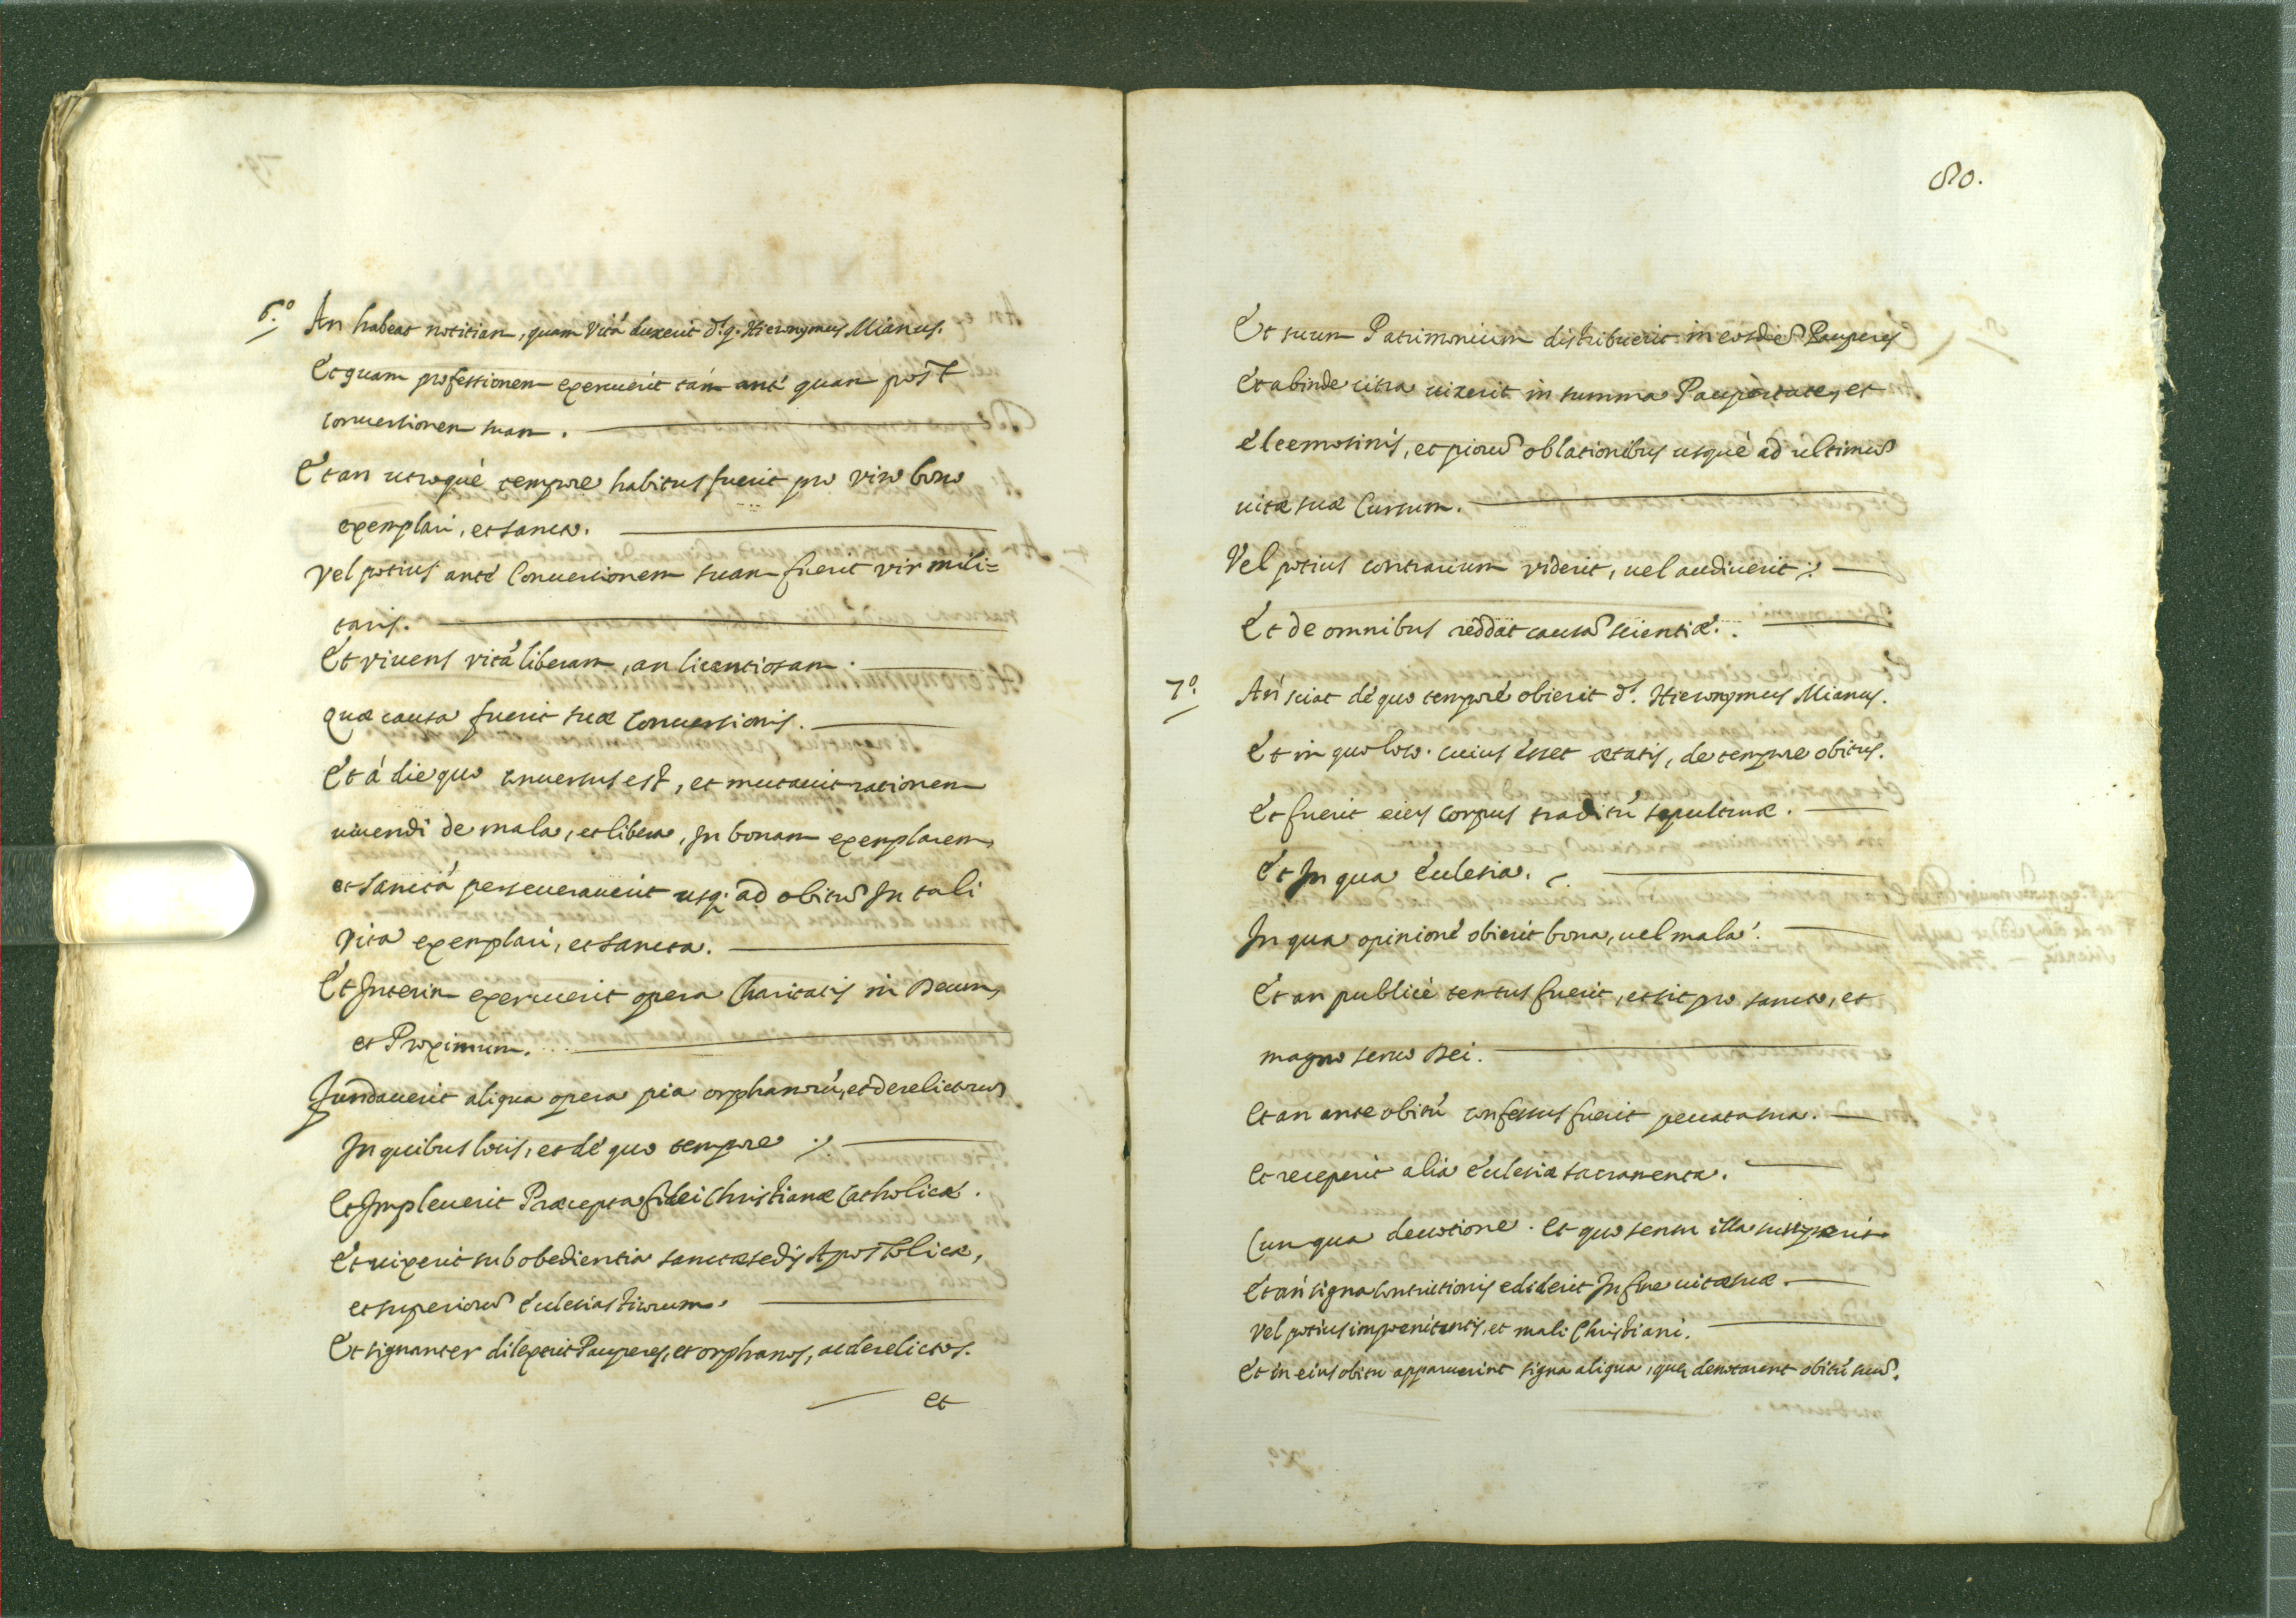 6.º An habeat notitiam, quam Vitá duxerit d.s q. Hieronymus Mianus.
Et quam professionem exercuerit tám anté quam post
conuersionem suam.
Et an utroque tempore habitus fuerit pro viro bono
exemplari, et sancto.
Vel potius anté Conuersionem suam fuerit vir mili=
taris.
Et viuens vitá liberam, an licentiosam.
Quæ causa fuerit suæ conuersionis.
Et á die quo conuersus est, et mutauit rationem
uiuendi de mala, et libera, In bonam exemplarem,
et Sanctá perseuerauerit usq; ad obitũ In tali
Vita exemplari, et sancta.
Et Interim exercuerit opera Charitatis in Deum,
et Proximum.
fundauerit aliqua opera pia orphanorú, et derelictorũ
In quibus locis, et dé quo tempore
Et Impleuerit Præcepta fidei Christianæ Catholicæ.
Et uixerit sub obedientia sanctæ sedis Apostolicæ,
et superiorũ Ecclesiasticorum.
Et signanter dilexerit Pauperes, et orphanos, ac derelictos.
et
80.
Et suum Patrimonium distribuerit in eosdẽ Pauperes
Et abinde citra uixerit in summa Paupertate, et
eleemosinis, et piorũ oblationibus usqué ad ultimũ
uitæ suæ Cursum.
Vel potius contrarium viderit, uel audiuerit
Et de omnibus reddat causã scientiæ.
7.º An sciat dé quo temporé obierit d.s Hieronymus Mianus.
Et in quo loco. cuius esset ætatis, de tempore obitus.
Et fuerit eius corpus traditú sepulturæ.
Et In qua Ecclesia.
In qua opinioné obierit bona, uel mala.
Et an publicé tentus fuerit, et sit pro sancto, et
magno seruo Dei.
Et an ante obitú confessus fuerit peccata sua.
Et receperit alia Ecclesiæ sacramenta.
Cum qua deuotione. Et quo sensu illa susceperit
Et an signa contrictionis ediderit In fine uitæ suæ.
Vel potius impoenitentis, et mali Christiani.
Et in eius obitu apparuerint signa aliqua, quę denotarent obitú suũ.